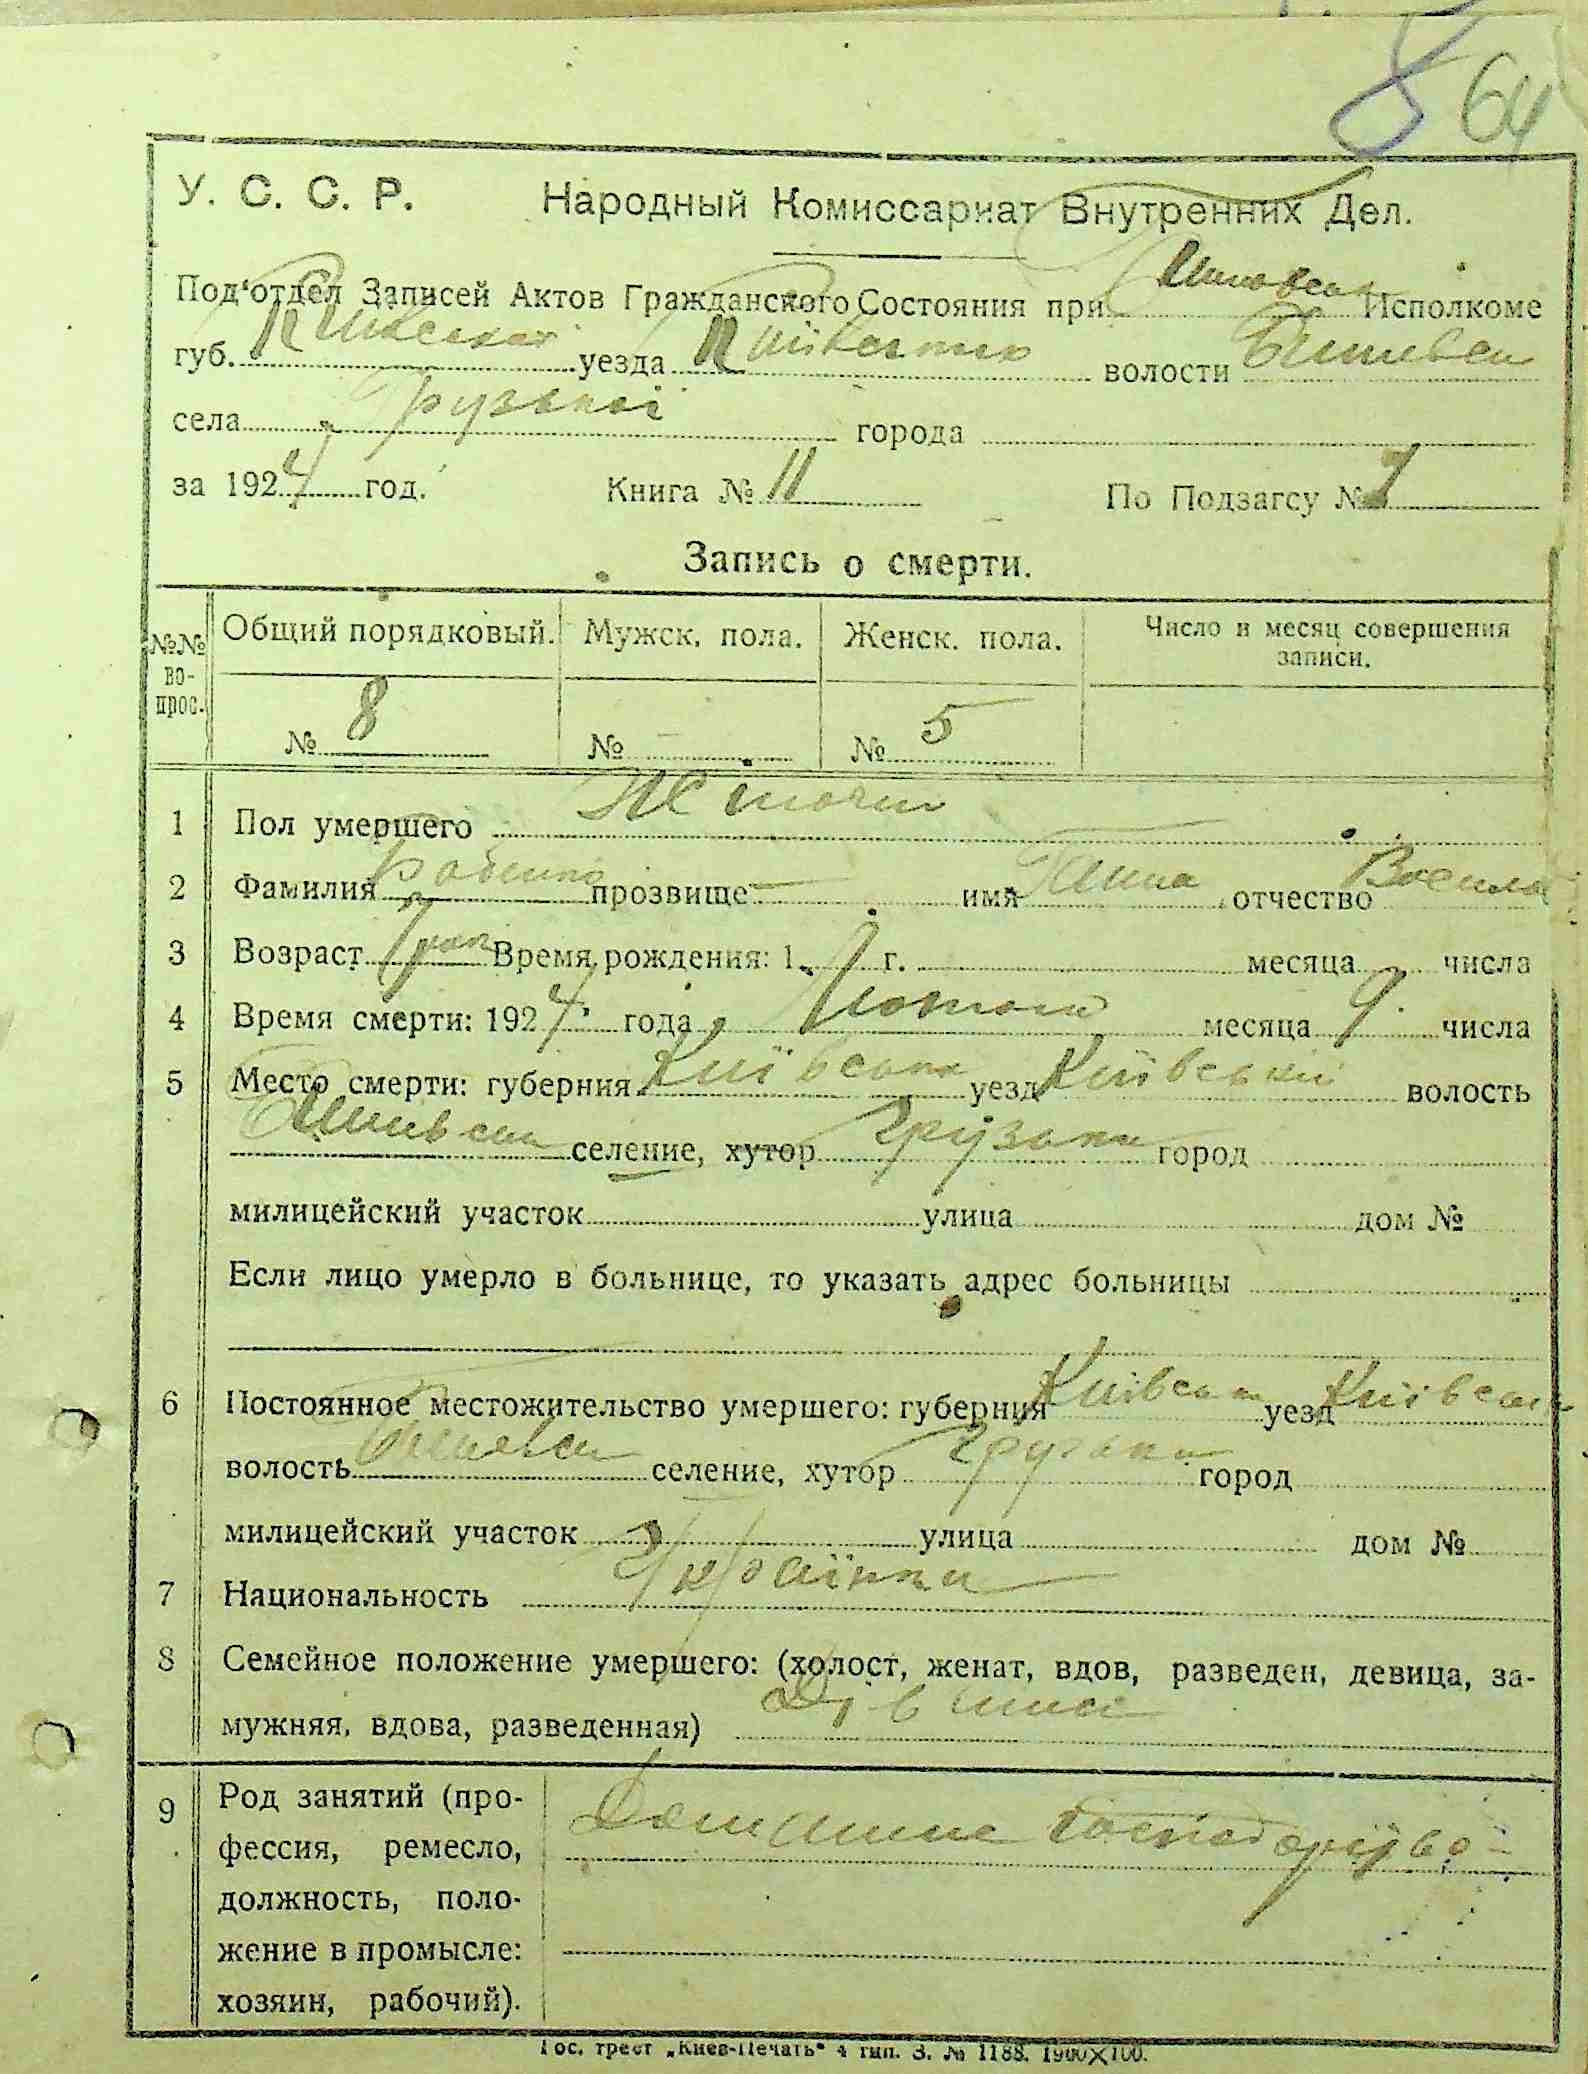 8 64
У. С. С. Р. Народный Комиссариат Внутренних Дел.
Под'отдел Записей Актов Гражданского Состояния при Исполкоме
губ. Київської уезда Київського волости Бишевсь
села Грузької города
за 1924 год. Книга № 11 По Подзагсу №
Запись о смерти.
№№ во-прос. Общий порядковый. Мужск. пола. Женск. пола. Число и месяц совершения записи.
№ 8 № — № 5
1 Пол умершего Жіночи
2 Фамилия прозвище — имя Ганна отчество Васила
3 Возраст Время рождения: 1 г. месяца числа
4 Время смерти: 1924 года Лютого месяца 9 числа
5 Место смерти: губерния Київська уезд Київський волость
Бишевська селение, хутор Грузька город
милицейский участок улица дом №
Если лицо умерло в больнице, то указать адрес больницы
6 Постоянное местожительство умершего: губерния Київська уезд Київськ
волость Бишевсь селение, хутор Грузька город
милицейский участок улица дом №
7 Национальность Українка
8 Семейное положение умершего: (холост, женат, вдов, разведен, девица, за-
мужняя, вдова, разведенная) Дівиця
9 Род занятий (про- Домашнє господарство
фессия, ремесло,
должность, поло-
жение в промысле:
хозяин, рабочий).
Гос. трест „Киев-Печать“ 4 тип. З. № 1188. 1900×100.